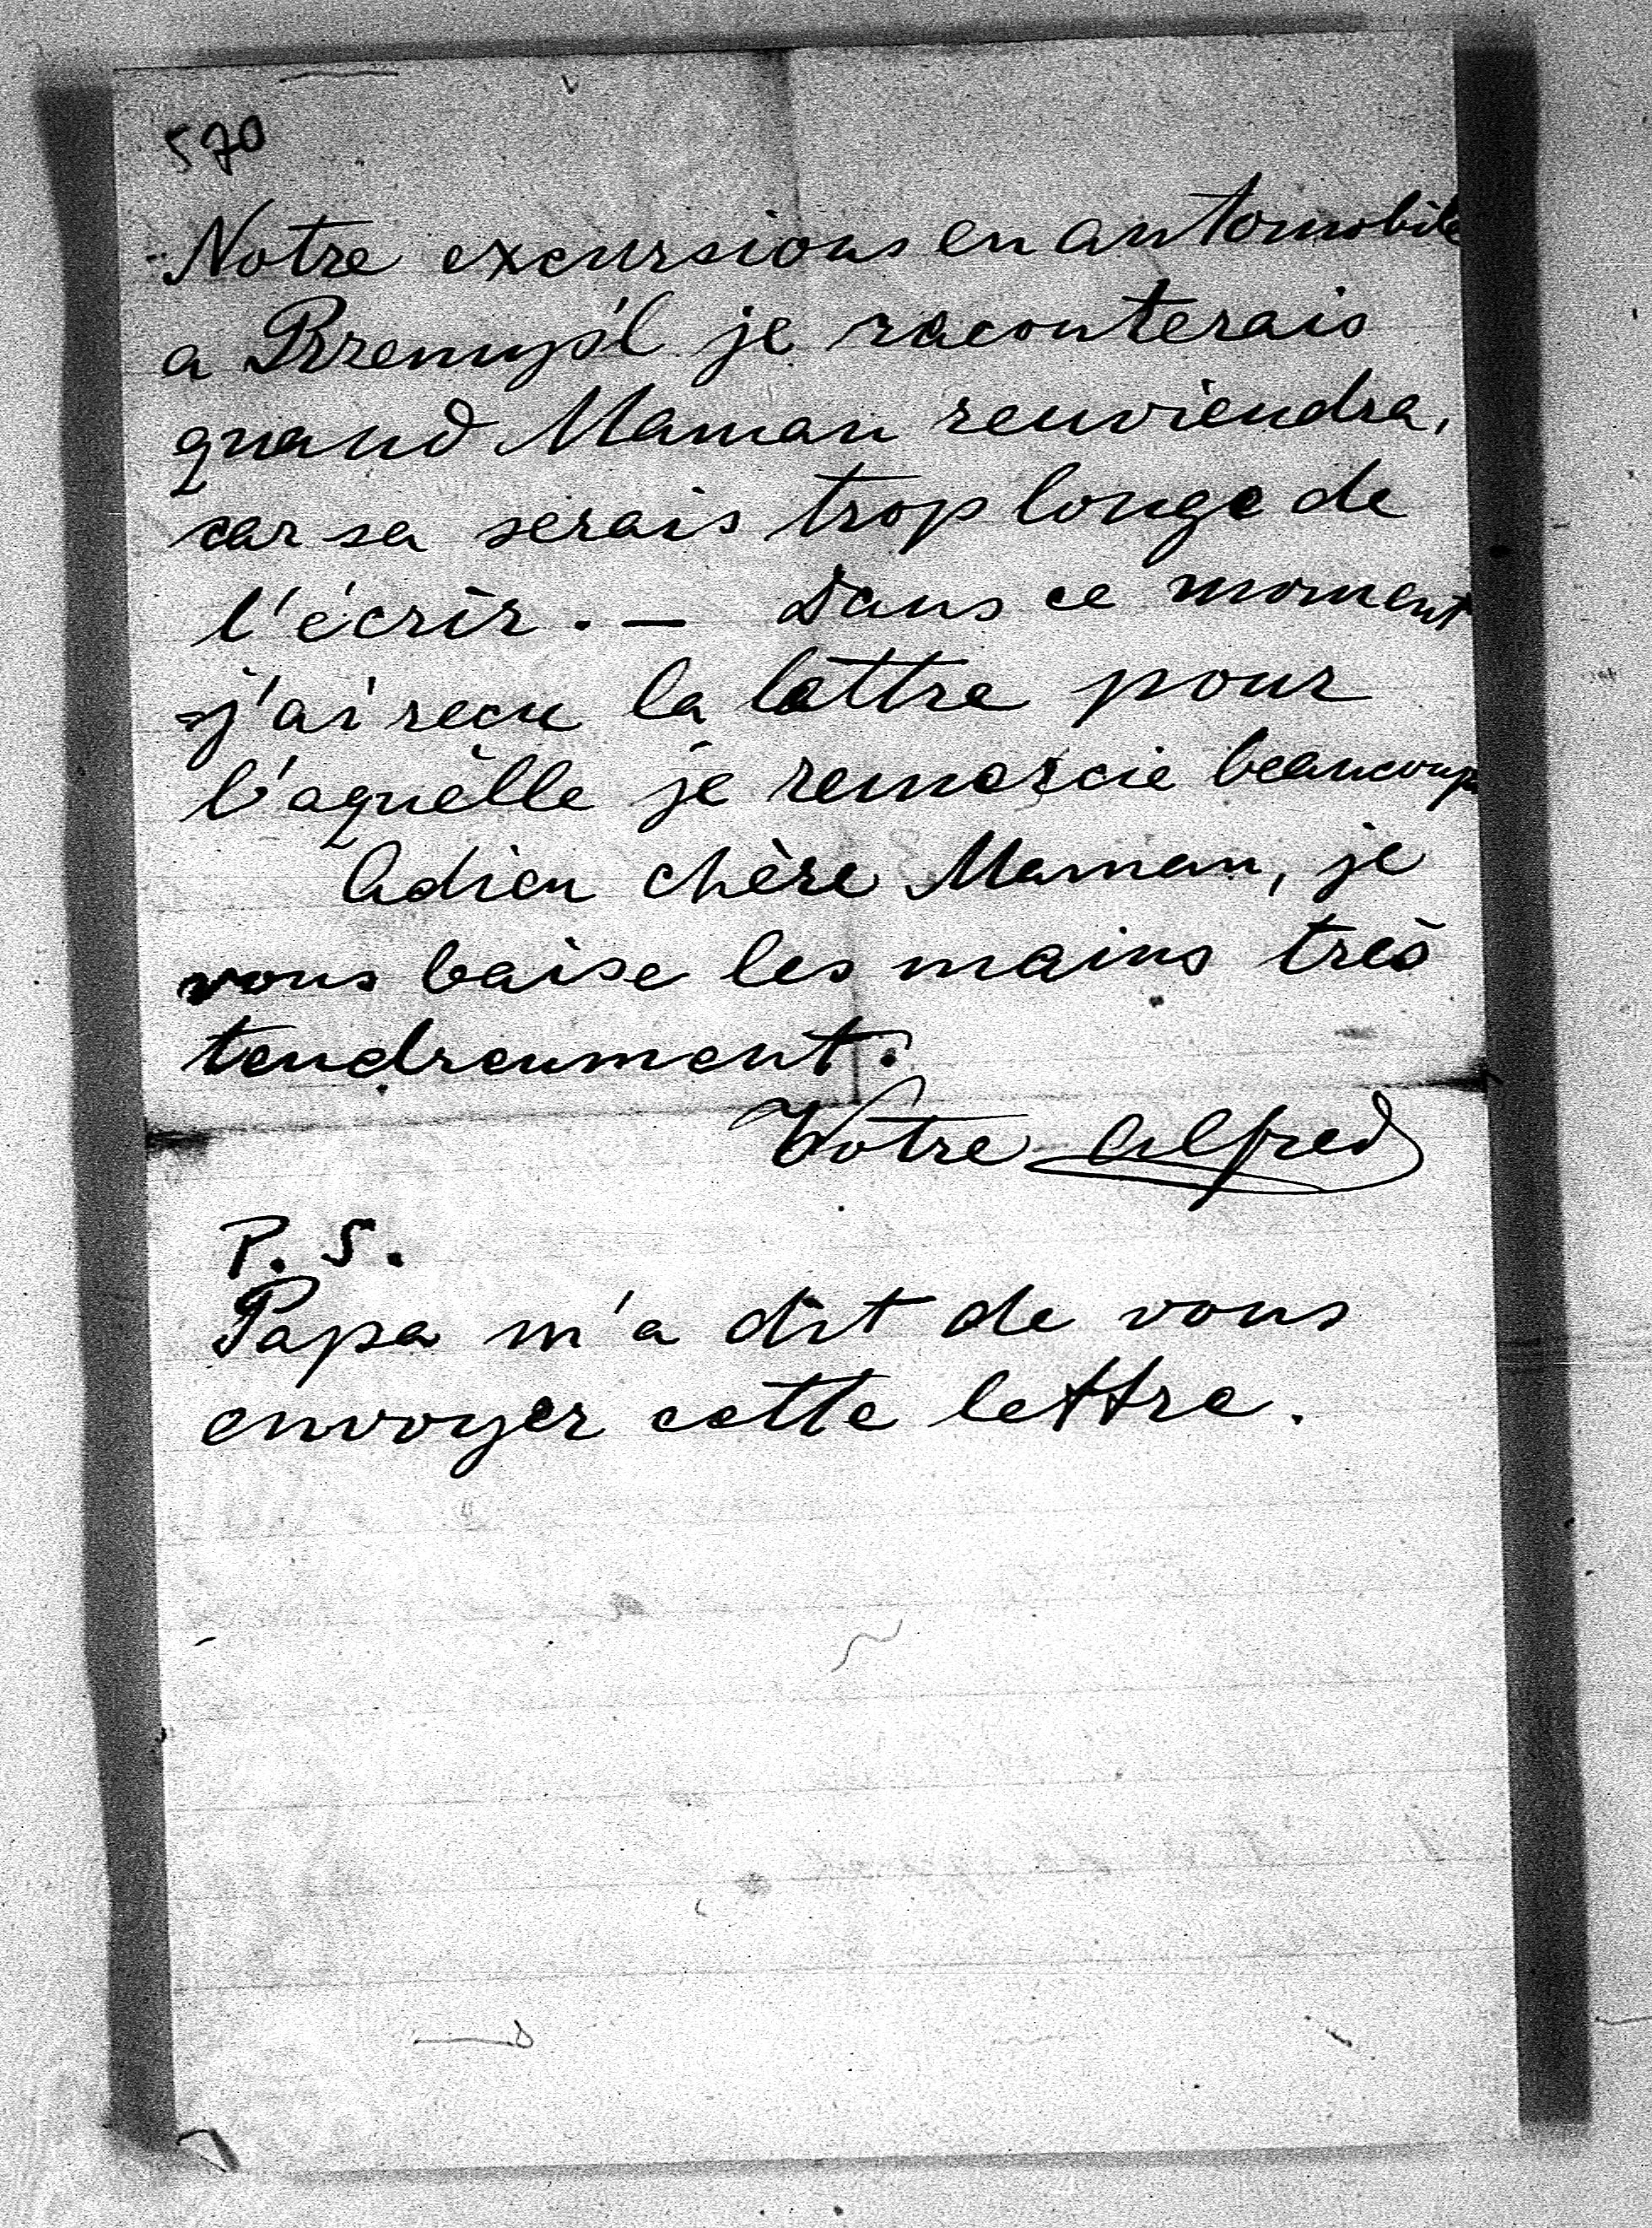 570
Notre excursions en automobile
a Przemyśl je raconterais
quand Maman reuviendra,
car sa serais trop longe de
l'écrir. — Dans ce moment
j'ai recu la lettre pour
l'aquèlle je remercie beaucoup
Adieu chère Maman, je
vous baise les mains très
tendreument.
Votre Alfred
P. S.
Papa m'a dit de vous
envoyer cette lettre.